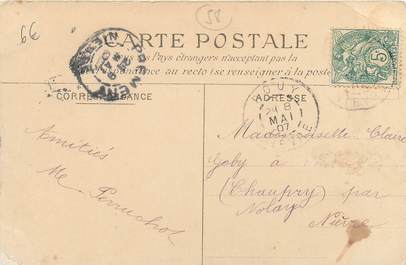 6€
58
CARTE POSTALE
Pays étrangers n'acceptant pas la
correspondance au recto (se renseigner à la poste)
CORRESPONDANCE
ADRESSE
PREMERY
8
MAI
07
5
Amitiés
Me Perruchot
Mademoiselle Claire
Goby à
(Chaupry) par
Nolay
Nièvre